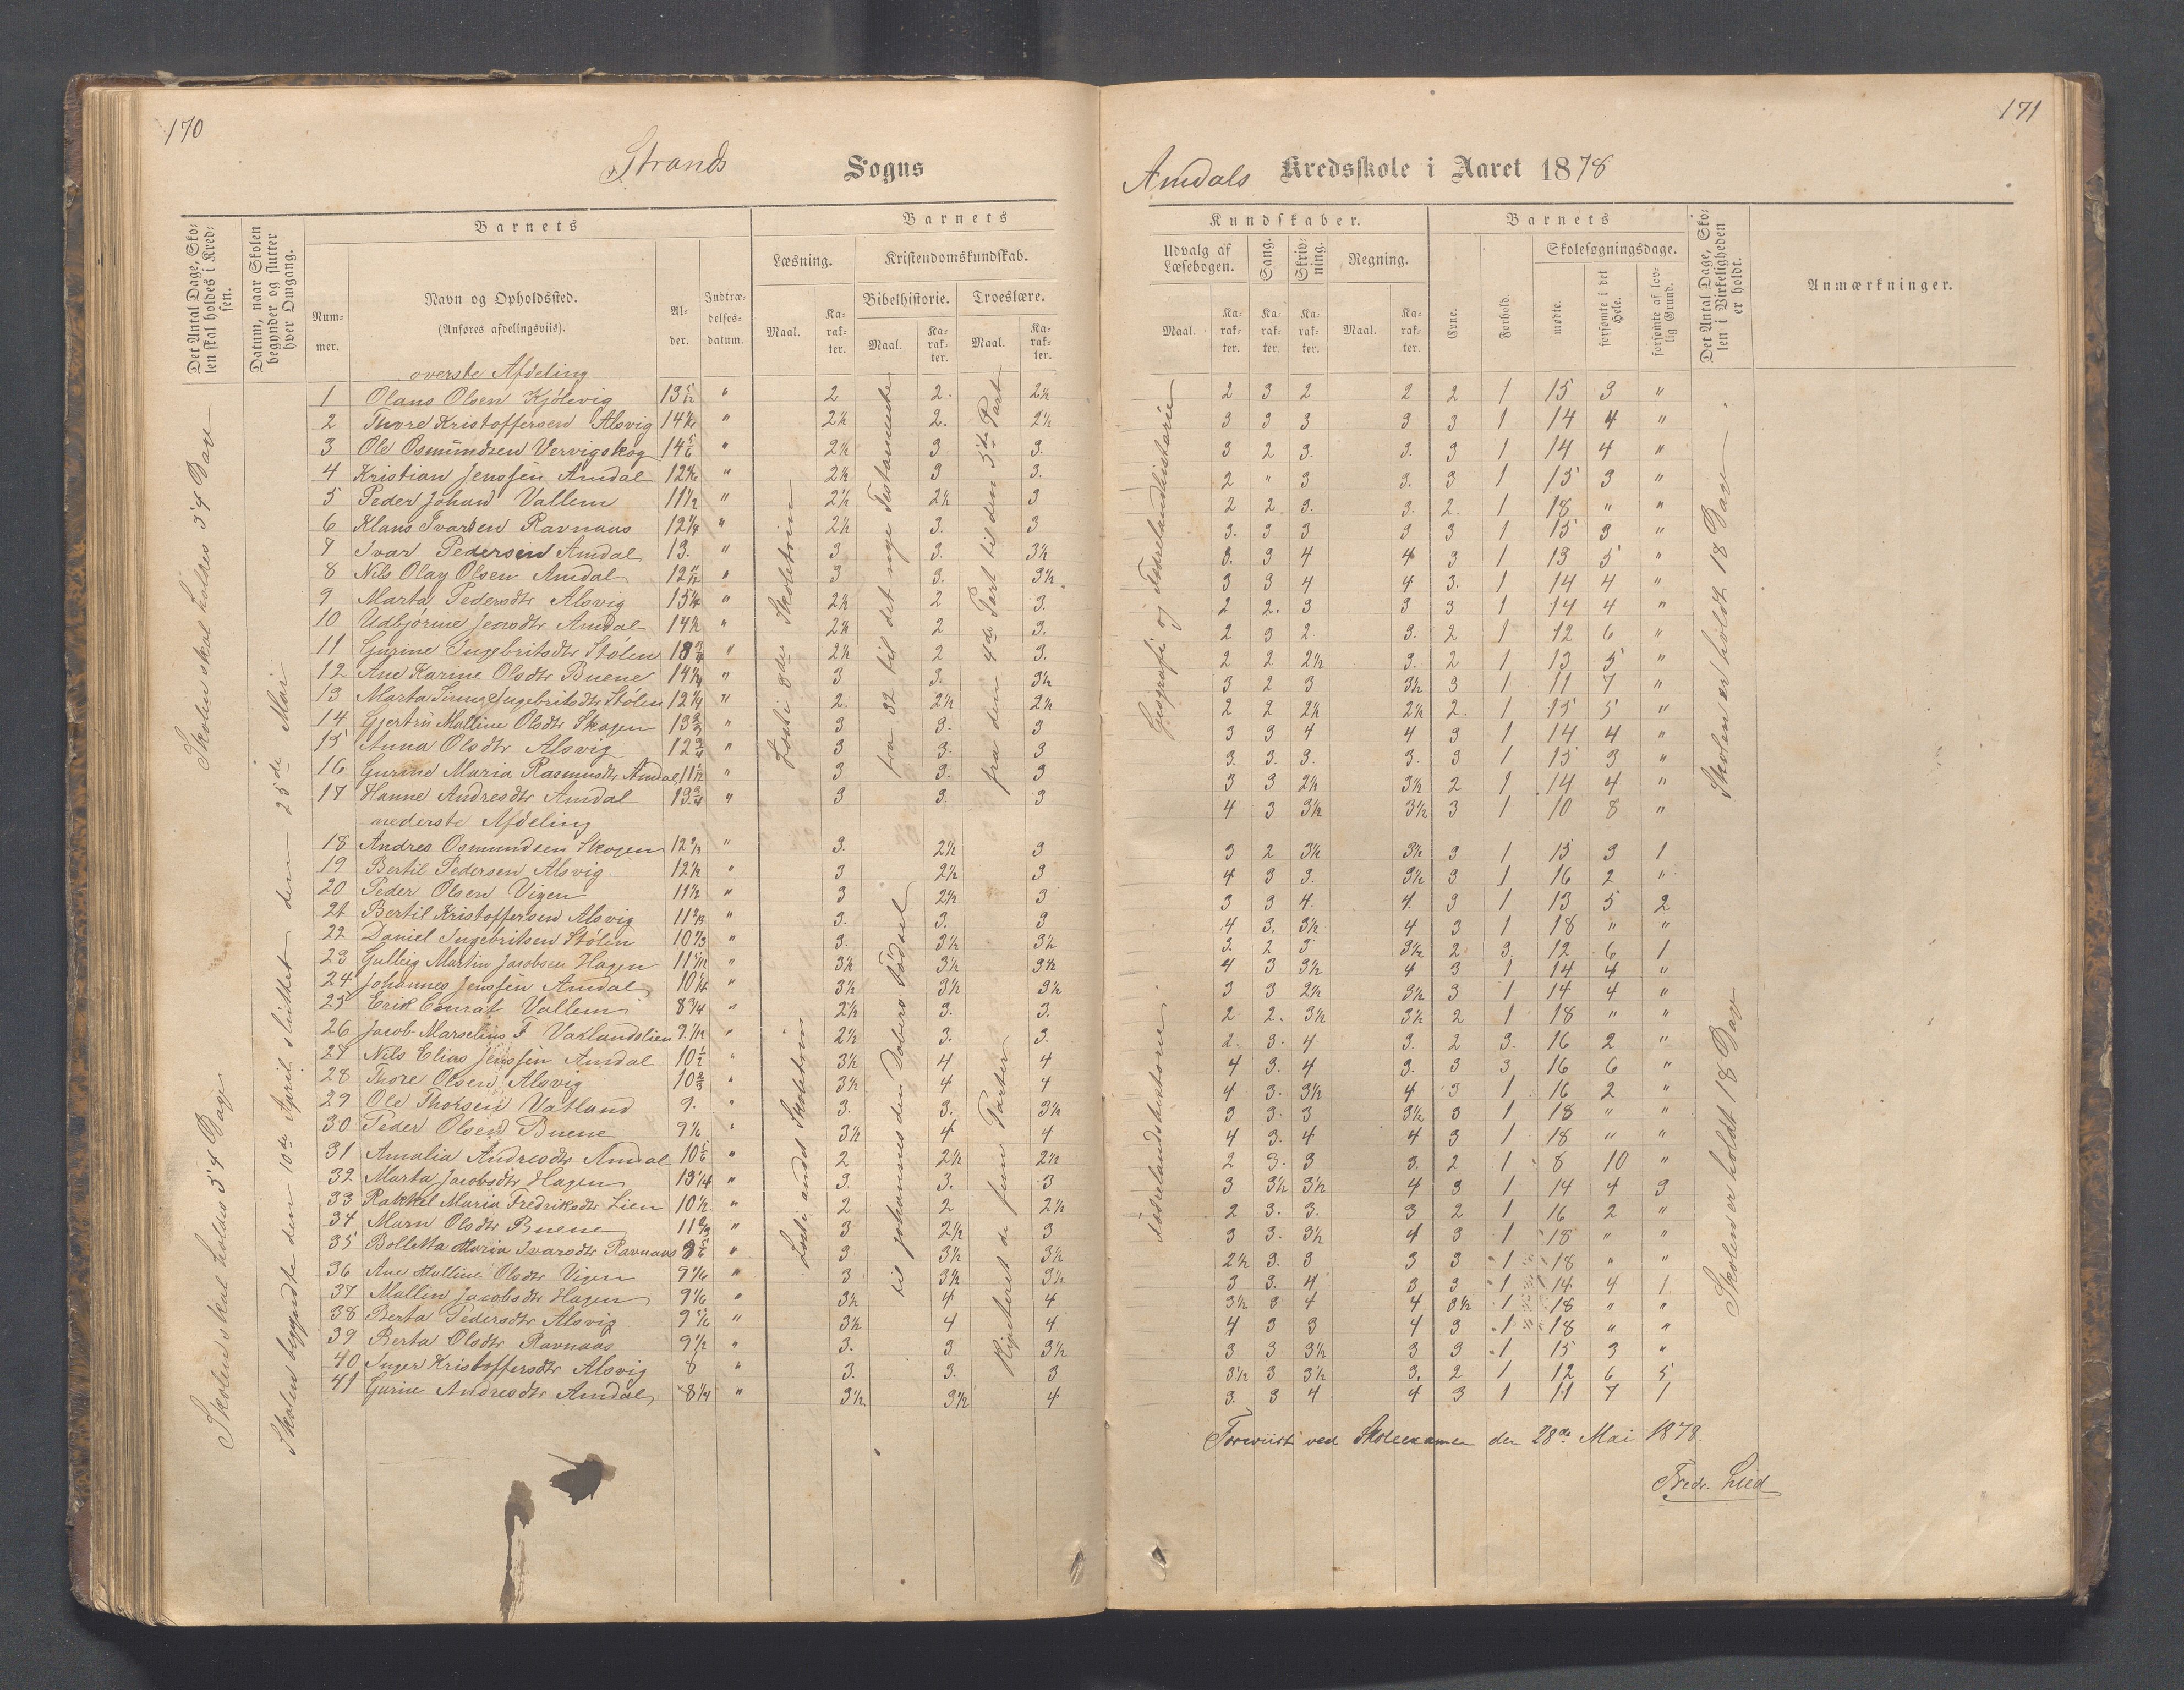 170
171
Strands Sogns
Amdals Kredsskole i Aaret 1878
Det Antal Dage, Skolen skal holdes i Kredsen.
Datum, naar Skolen begynder og slutter hver Omgang.
Barnets
Nummer.
Navn og Opholdssted.
(Anføres afdelingsviis).
Alder.
Indtrædelses-datum.
Barnets
Læsning.
Maal.
Karakter.
Kristendomskundskab.
Bibelhistorie.
Maal.
Karakter.
Troeslære.
Maal.
Karakter.
Kundskaber.
Udvalg af Læsebogen.
Maal.
Karakter.
Sang.
Karakter.
Skrivning.
Karakter.
Regning.
Maal.
Karakter.
Barnets
Evne.
Forhold.
Skolesøgningsdage.
mødte.
forsømte i det Hele.
forsømte af lovlig Grund.
Det Antal Dage, Skolen i Virkeligheden er holdt.
Anmærkninger.
Skolen skal holdes 54 Dage
Skolen skal holdes 54 Dage
Skolen begyndte den 10de April, sluttet den 25de Mai
øverste Afdeling
1 Olaus Olsen Kjølevig 13 5/12 " 2 2. 2½ 2 3 2 2 2 1 15 3 "
2 Thore Kristoffersen Alsvig 14½ " 2½ 2. 2½ 3 3 3 3 3 1 14 4 "
3 Ole Osmundsen Vervigskog 14 5/6 " 2½ 3 3. 3 2 3. 3. 3 1 14 4 "
4 Kristian Jenssen Amdal " 2½ 3 3. 2 " 3 3. 3 1 15 3 "
5 Peder Johan Vallem 11½ " 2½ 2½ 3 2 2. 3. 3. 2. 1 18 " "
6 Klaus Ivarsen Ravnaas 12¼ " 2½ 3. 3 3. 3 3 3 3 1 15 3 "
7 Ivar Pedersen Amdal 13. " 3 3. 3½ 3. 3 4 4 3 1 13 5 "
8 Nils Olay Olsen Amdal 12 11/12 " 3 3. 3½ 3 3 4 4 3. 1 14 4 "
9 Marta Pedersdtr Alsvig 15¼ " 2½ 2 3. 2 2. 3 3 3 1 14 4 "
10 Udbjørine Jensdtr Amdal 14½ " 2½ 2 3. 2 3 2. 3. 2 1 12 6 "
11 Gurine Ingebritsdtr Stølen 13¾ " 2½ 2 3. 2 2 2½ 3. 2 1 13 5 "
12 Ane Karine Olsdtr Buene 14¼ " 3 3. 3½ 3 2 3 3½ 3 1 11 7 "
13 Marta Sirine Ingebritsdtr Stølen 12¼ " 2. 2½ 2½ 2 2 2½ 2½ 2. 1 15 5 "
14 Gjertru Malline Olsdtr Skogen 13⅔ " 3 3. 3 3 3 4 4 3 1 14 4 "
15 Anna Olsdtr Alsvig 12¾ " 3 3. 3 3. 3. 3. 3. 3 1 15 3 "
16 Gurine Maria Rasmusdtr Amdal 11½ " 3 3. 3 3 3 2½ 3½ 2 1 14 4 "
17 Hanne Andresdtr Amdal 13¾ " 3 3. 3 4 3 3½ 3½ 3 1 10 8 "
nederste Afdeling
18 Andres Osmundsen Skogen 12⅔ " 3. 2½ 3 3 2 3½ 3½ 3 1 15 3 1
19 Bertil Pedersen Alsvig 12½ " 3 2½ 3 4 3 3. 3½ 3 1 16 2 "
20 Peder Olsen Vigen 11½ " 3 2½ 3 3 3 4. 4. 3 1 13 5 2
21 Bertil Kristoffersen Alsvig 11⅔ " 3. 3. 3 4 3. 3½ 4 3 1 18 " "
22 Daniel Ingebritsen Stølen 10⅓ " 3. 3½ 3½ 3. 2 3 3½ 2 3. 12 6 1
23 Gulleig Martin Jacobsen Hagen 11 5/12 " 3½ 3½ 3½ 4 3 3½ 4 3 1 14 4 "
24 Johannes Jenssen Amdal 10¼ " 3½ 3½ 3½ 3 3 2½ 3½ 3 1 14 4 "
25 Erik Conrat Vallem 8¾ " 2½ 3. 3. 2 2. 3½ 3½ 2 1 18 " "
26 Jacob Marselius F Vatlandslien 9 1/12 " 2½ 3. 3. 2. 3. 4 3. 2 3. 16 2 "
27 Nils Elias Jenssen Amdal 10½ " 3½ 4 4 4 3. 4 3. 3 3 16 6 "
28 Thore Olsen Alsvig 10⅔ " 3½ 4 4 4 3. 3½ 4 3 1 16 2 "
29 Ole Thorsen Vatland 9. " 3. 3. 3½ 3 3. 3 3½ 3 1 18 " "
30 Peder Olsen Buene 9⅙ " 3½ 4 4 4 3. 4 4 3 1 18 " "
31 Amalia Andresdtr Amdal 10⅚ " 2 2½ 2½ 2 3. 3 3. 2 1 8 10 "
32 Marta Jacobsdtr Hagen 13¼ " 3. 3. 3 3 3½ 3½ 4 3 1 14 4 3
33 Rakkel Maria Fredriksdtr Lien 10½ " 2 2 2½ 2 3. 3. 3 2 1 16 2 "
34 Marn Olsdtr Buene 11⅔ " 3 2½ 3 3 3. 3½ 4 3 1 18 " "
35 Bolletta Maria Ivarsdtr Ravnaas " 3 3½ 3½ 2½ 3. 3 3 3 1 18 " "
36 Ane Malline Olsdtr Vigen 9⅙ " 3 3½ 3½ 3 3. 4 3 3 1 14 4 1
37 Mallin Jacobsdtr Hagen 9⅙ " 3½ 4 4 3½ 3 4 4 3½ 1 18 " "
38 Berta Pedersdtr Alsvig 9⅚ " 3½ 4 4 4 3 3 4 3 1 18 " "
39 Berta Olsdtr Ravnaas 9½ " 3. 3 3½ 3 3 3½ 3 3 1 15 3 "
40 Inger Kristoffersdtr Alsvig 8 " 3. 3. 3 3½ 3 3½ 3. 2 1 12 6 5
41 Gurine Andresdtr Amdal 8¼ " 3½ 3½ 4 3. 3 4 4 3 1 11 7 1
Læst i 3die Skoletrin
fra 32 til det nye Testamente
fra den 4de Part til den 5te Part
Læst i andet Skoletrin
til Johannes den Døbers Fødsel
Repeteret de fem Parter
Geografi og Fædrelandshistorie
Fædrelandshistorie.
Skolen er holdt 18 Dage
Skolen er holdt 18 Dage
Foreviist ved Skoleexamen den 28de Mai 1878.
Fredr. Lied